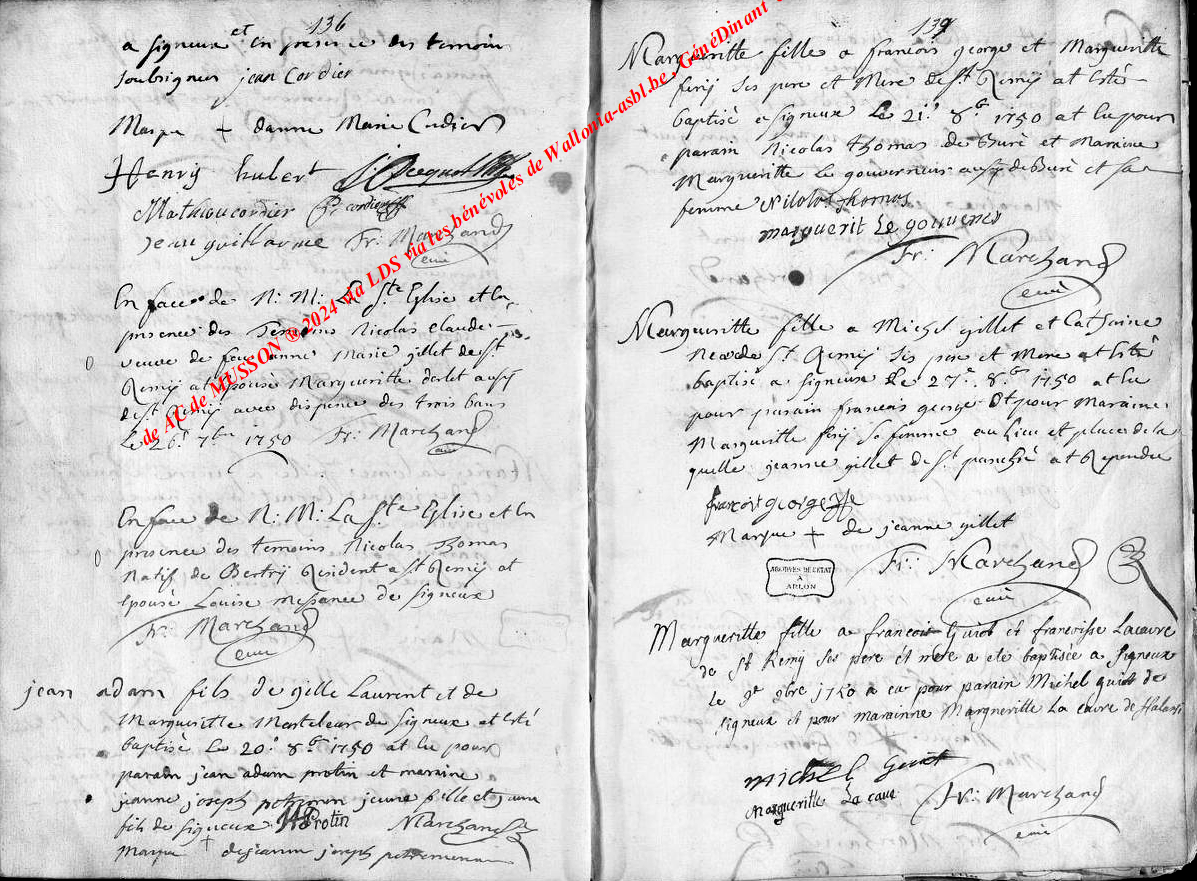 136
a signeux et En presence des temoins
soubsignes jean Cordier
Marque + danne Marie Cordier
Henry hubert
Mathieu cordier P: cordier
jean guillaume Fr: Marchand
curé
En face de N: M: La Ste Eglise et En
presence des Temoins Nicolas Claude
veuve de feue anne Marie gillet de St
Remij at Epousé Margueritte derlet aussy
de St Remij avec dispence des trois bans
Le 26e 7bre 1750 Fr: Marchand
curé
En face de N: M: La Ste Eglise et En
presence des temoins Nicolas Thomas
Natif de Bertrij Resident a St Remij at
Epousé Louise messance de signeux
Fr: Marchand
curé
jean adam fils de gille Laurent et de
Margueritte Marteleur de signeux at Eté
baptisé Le 20e 8bre 1750 at Eu pour
parain jean adam protin et maraine
jeanne joseph petremen jeune fille et jeune
fils de signeux Protin Marchand
Marque + de jeanne joseph petremen
139
Margueritte fille a francois george et Margueritte
ferij ses pere et Mere de St Remij at Eté
baptisé a signeux Le 21e 8bre 1750 at Eu pour
parain Nicolas Thomas de Buré et Maraine
Margueritte Le gouverneur aussy de Buré et sa
femme Nicolas Thomas
marguerit Le gouverneur
Fr: Marchand
curé
Margueritte fille a Michel gillet et Catherine
de St Remij ses pere et Mere at Eté
baptisé a signeux Le 27e 8bre 1750 at Eu
pour parain francois george Et pour Maraine
Margueritte ferij sa femme au Lieu et place de la
quelle jeanne gillet de St pancré at Rependue
francoit george
Marque + de jeanne gillet
ARCHIVES DE L'ETAT
A
ARLON
Fr: Marchand
curé
Margueritte fille a francois Guiot et francoisse Lacavre
de St Remy ses pere et mere a eté baptisée a signeux
le 9e 9bre 1750 a eu pour parain Michel guiot de
signeux et pour marainne Margueritte La cavre de
Michel Guiot
Margueritte La cave Fr: Marchand
curé
de AC de MUSSON ® 2024 via LDS via les bénévoles de Wallonia-asbl.be, GénéDinant